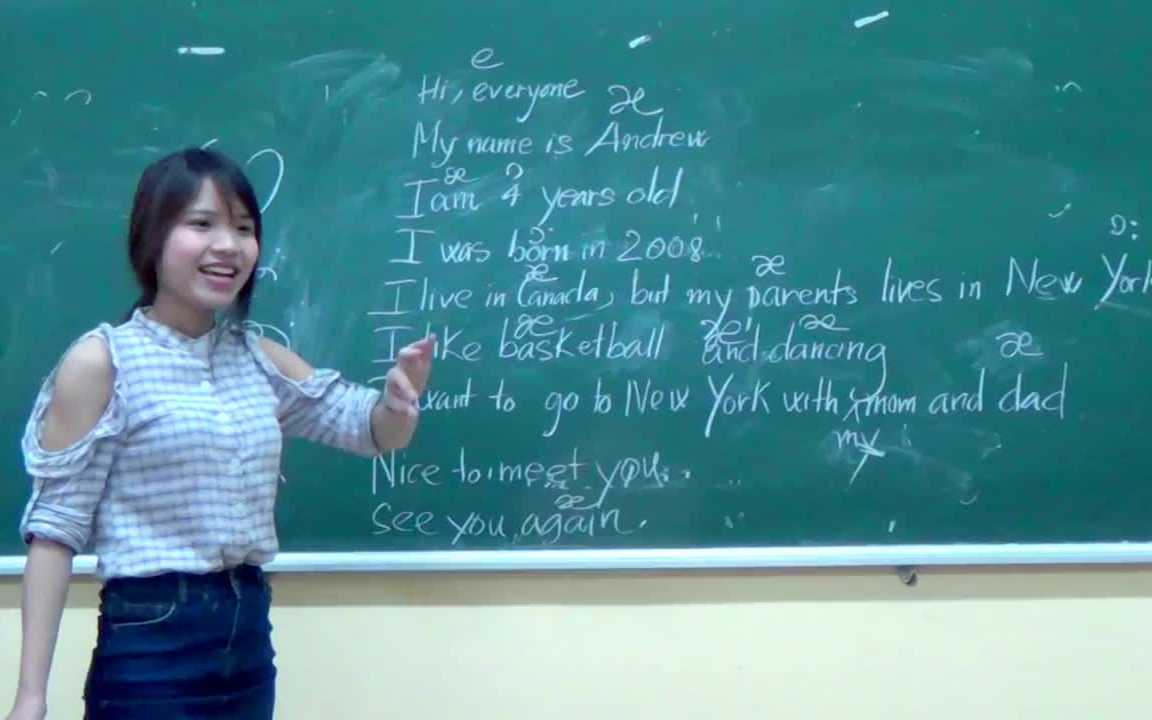 e
Hi, everyone
æ
My name is Andrew
æ
I am 4 years old
I was born in 2008
ɔ:
æ æ
I live in Canada, but my parents lives in New York
æ æ æ æ
I like basketball and dancing
want to go to New York with mom and dad
my
Nice to meet you
æ
See you again.